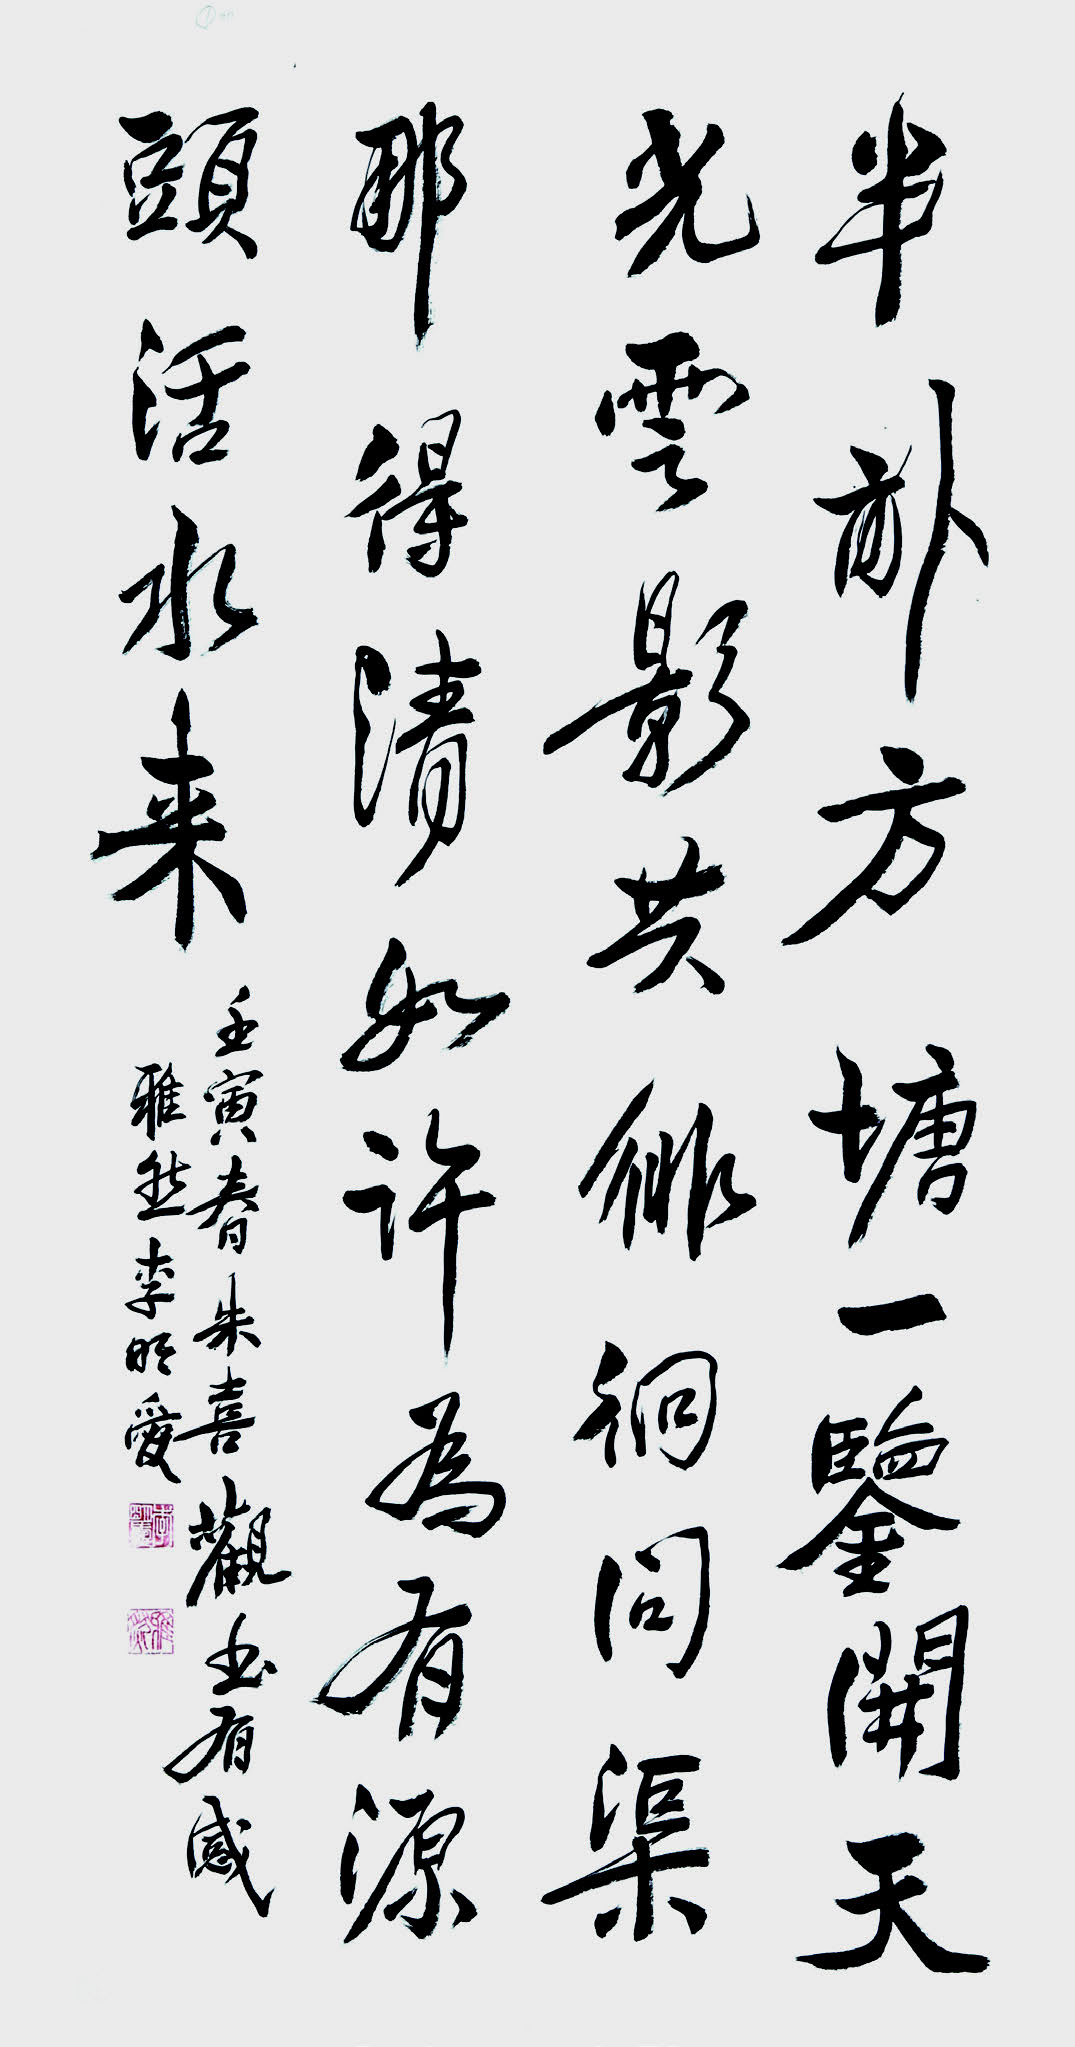 半畝方塘一鑒開天
光雲影共徘徊問渠
那得清如許為有源
頭活水来
壬寅春朱喜觀书有感
雅然李明愛